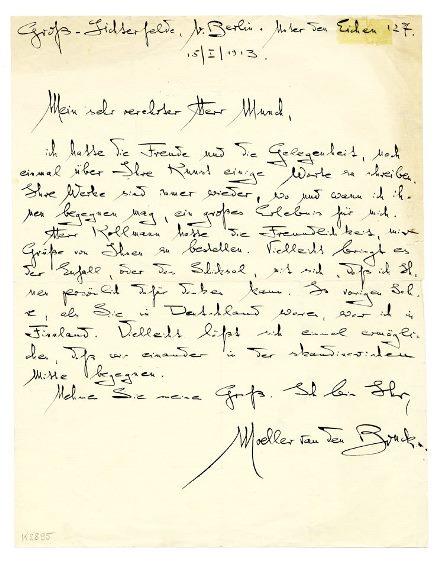 Groß-Lichterfelde, b. Berlin. Unter den Eichen 127.
15/I/1913.
Mein sehr verehrter Herr Munch,
ich hatte die Freude und die Gelegenheit, noch
einmal über Ihre Kunst einige Worte zu schreiben.
Ihre Werke sind immer wieder, wo und wann ich ih-
nen begegnen mag, ein großes Erlebnis für mich.
Herr Kollmann hatte die Freundlichkeit, mir
Grüße von Ihnen zu bestellen. Vielleicht bringt es
der Zufall, oder das Schicksal, mit sich, daß ich Ih-
nen persönlich dafür danken kann. Im vorigen Jah-
re, als Sie in Deutschland waren, war ich in
Finnland. Vielleicht läßt sich einmal ermögli-
chen, daß wir einander in der skandinavischen
Mitte begegnen.
Nehmen Sie meine Grüße. Ich bin Ihr
Moeller van den Bruck.
K2895